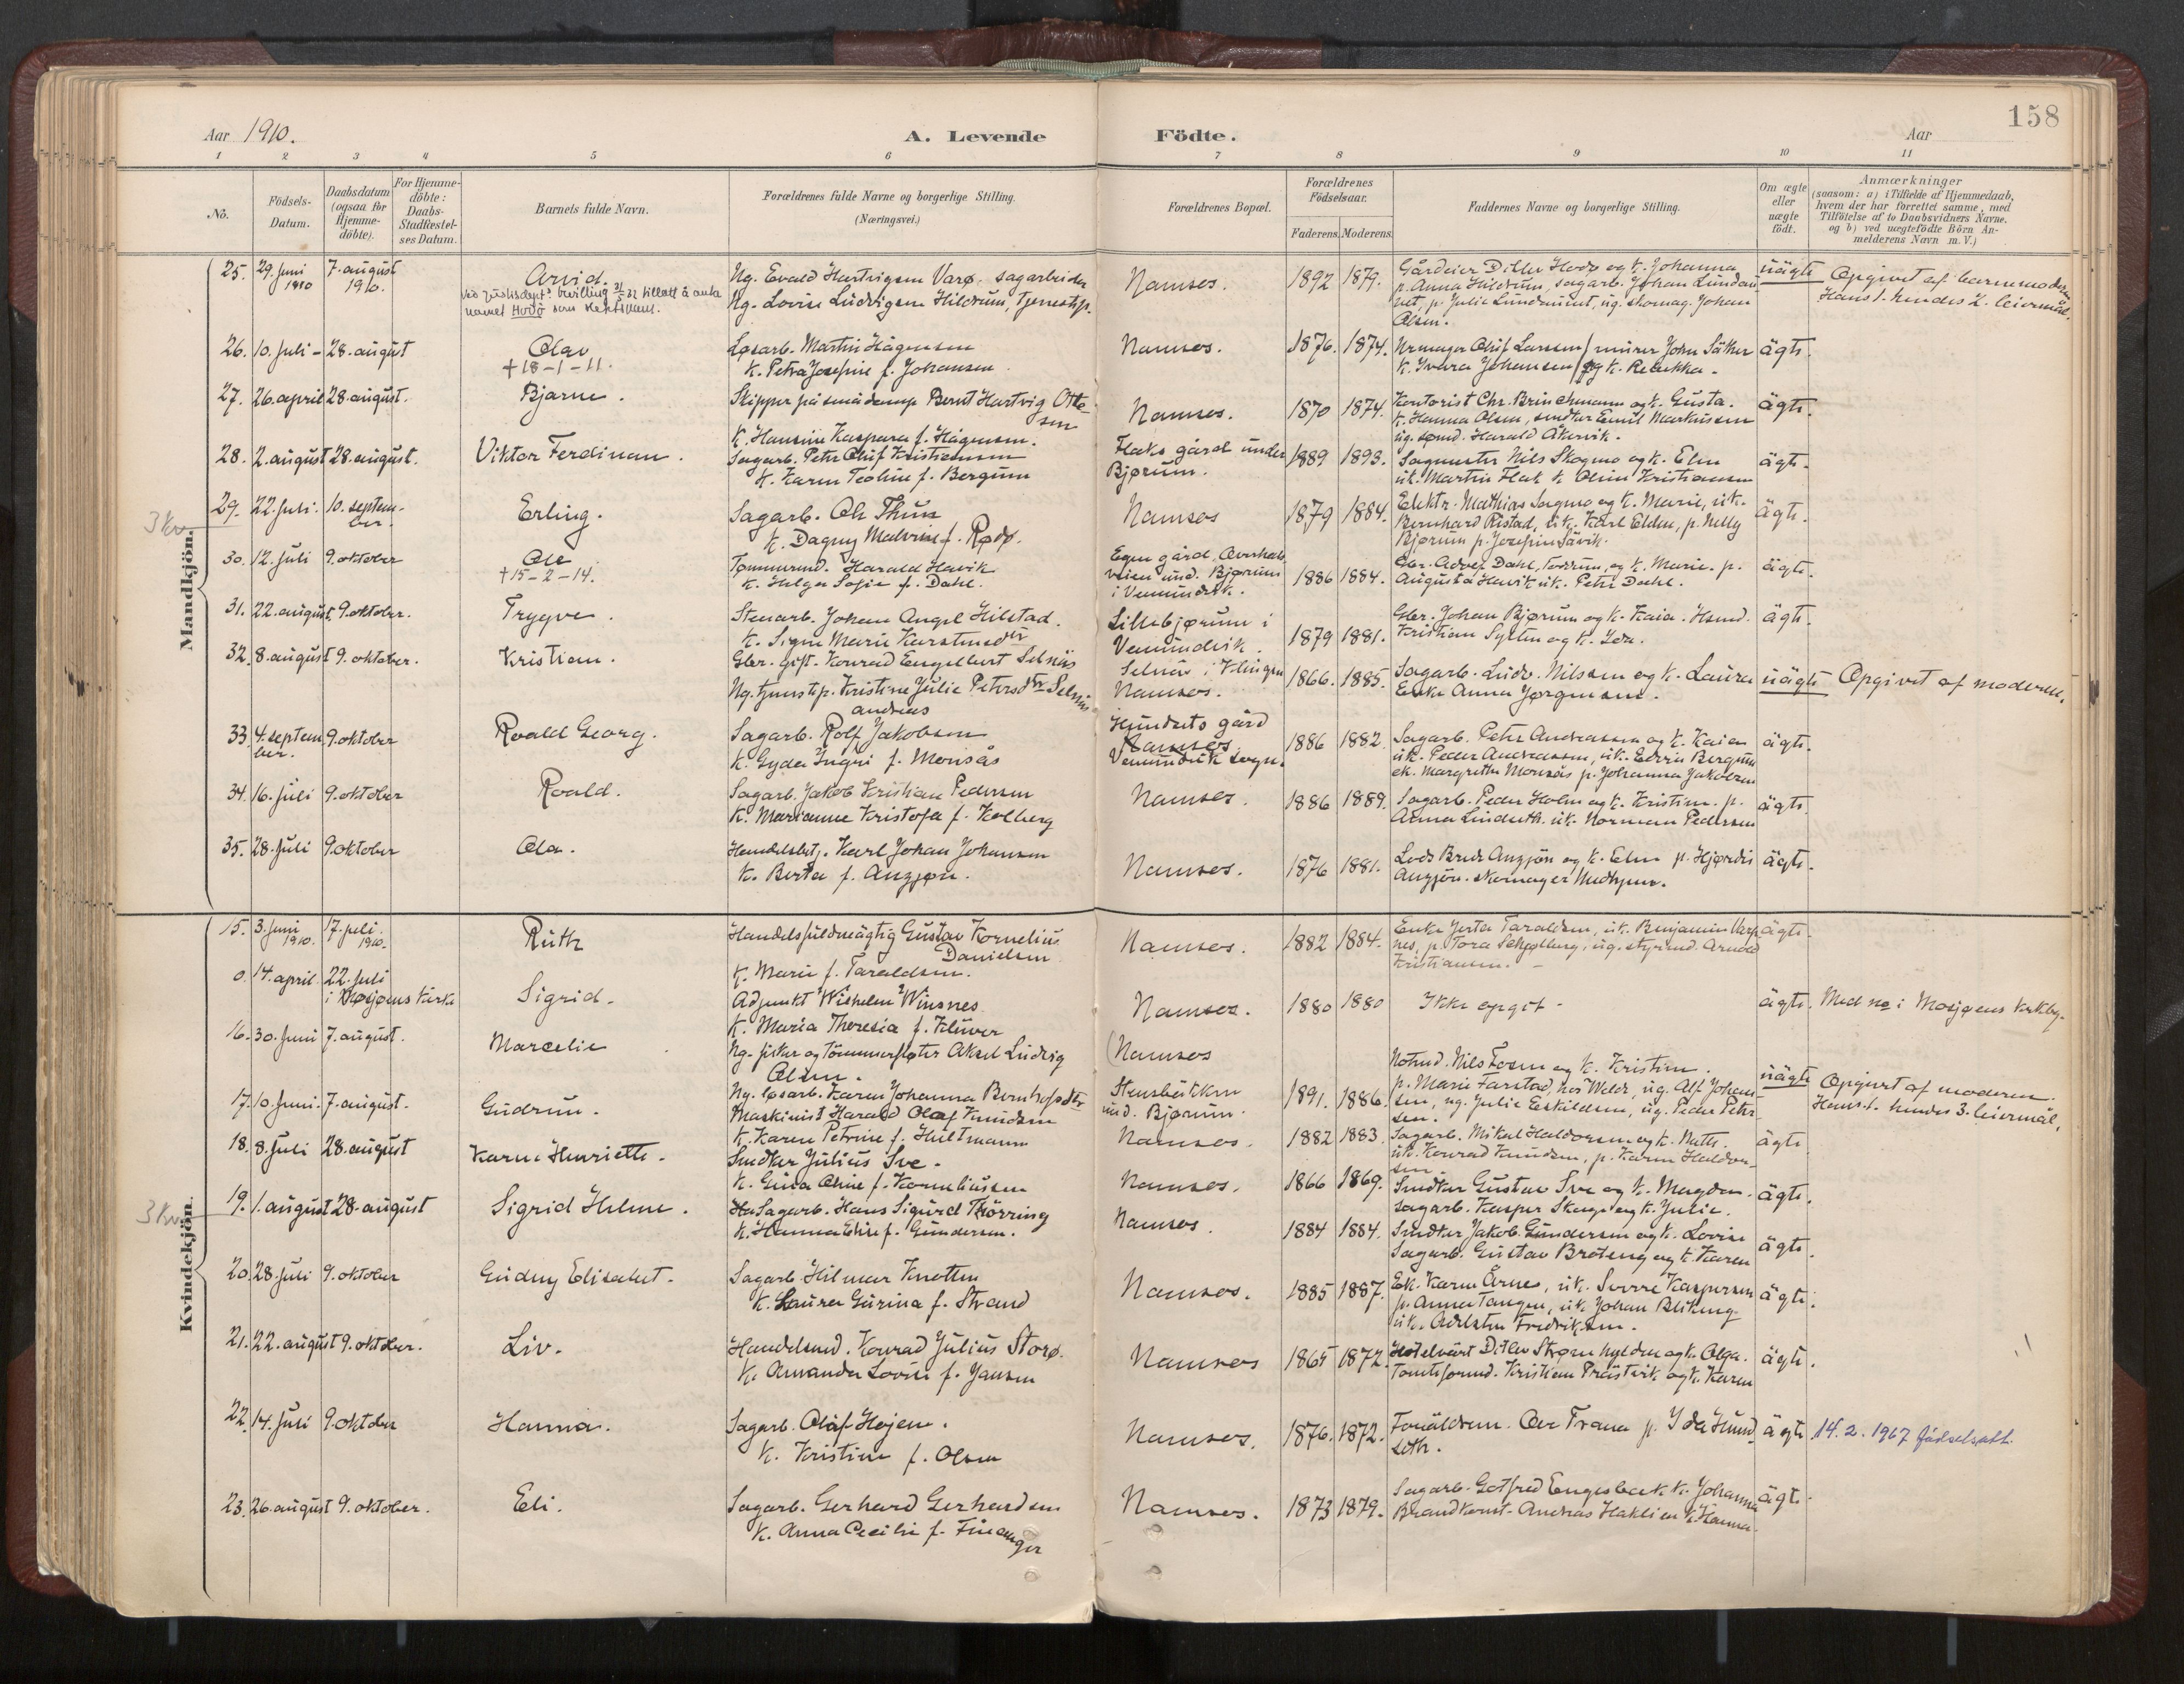 158
Aar 1910.
A. Levende Födte.
Aar
1 2 3 4 5 6 7 8 9 10 11
No.
Födsels-Datum.
Daabsdatum (ogsaa for Hjemme-döbte).
For Hjemme-döbte: Daabs-Stadfæstel-ses Datum.
Barnets fulde Navn.
Forældrenes fulde Navne og borgerlige Stilling.
(Næringsvei.)
Forældrenes Bopæl.
Forældrenes Födselsaar.
Faderens. Moderens.
Faddernes Navne og borgerlige Stilling.
Om ægte eller uægte födt.
Anmærkninger
(saasom: a) i Tilfælde af Hjemmedaab, hvem der har forrettet samme, med Tilföielse af to Daabsvidners Navne, og b) ved uægtefödte Börn An-melderens Navn m. V.)
Mandkjön.
25. 29. juni 1910 7. august 1910. Arvid.
ved justisdept's bevilling 31/5 32 tillatt å anta
navnet Hodö som slektsnavn.
Ng. Evald Hartvigsen Varø. sagarbeider
Ng. Lovise Ludvigsen Hildrum, tjenestep.
Namsos. 1892 1879.
Gårdeier Ditlev Hodø og k. Johanna
p. Anna Hildrum, sagarb. Johan
p. Julie ug. skomag. Johan
Olsen.
uägte Opgivet af barnemoderen
Hans 1. hendes 2. leiermål.
26. 10. juli - 28. august Olav
+ 18-1-11.
Løsarb. Martin Hågensen
k. Petra Josefine f. Johansen.
Namsos. 1876. 1874.
Oluf Larssen / murer John Säther
k. Ivara Johansen / og k. Rebekka.
ägte.
27. 26. april 28. august. Bjarne.
Skipper på smådamp Bernt Hartvig Otte-
sen
k. Hansine Kaspara f. Hågensen.
Namsos. 1870 1874.
Kontorist Chr. Brinchmann og k. Gusta.
k. Hanna Olsen, snedker Emil Markussen
ug. Harald Åkervik.
ägte.
28. 2. august 28. august. Viktor Ferdinan.
Sagarb. Peter Oluf Kristiansen
k. Karen Teoline f. Bergum
Flaks gård under
Bjørum. 1889 1893.
Sagmester Nils Skogmo og k. Elen
uk. Martin Flak k Oline Kristiansen
ägte.
3 kv.
29. 22. juli. 10. septem-
ber. Erling.
Sagarb. Ole Thun
k. Dagny Malvine f. Rødø.
Namsos 1879 1884.
Elektr. Mathias Sagmo og k. Marie, uk.
Bernhard Ristad, uk. Karl Elden, p. Nelly
Bjørum p. Josefine Såvik.
ägte.
30. 12. juli 9. oktober Ole
+ 15-2-14.
Tømmermd. Harald Havik
k. Helga Sofie f. Dahl.
Egen gård,
veien und. Bjørum
i Vemundvik. 1886 1884.
Gbr. Dahl, og k. Marie. p.
Augusta Havik uk. Peter Dahl.
ägte.
31. 22. august, 9. oktober. Trygve.
Stenarb. Johan Angel Hilstad.
k. Signe Marie Karstensdtr
Lillebjørum i
Vemundvik. 1879 1881.
Gbr. Johan Bjørum og k. Kaia. Hsmd.
Kristian og k. Ida.
ägte.
32. 8. august 9. oktober. Kristian.
Gbr. gift. Konrad Engelbert Selnäs
Ng. tjenestep. Kristine Julie Petersdtr
Selnäs i Klingen
Namsos. 1866. 1885.
Sagarb. Ludv. Nilssen og k. Laura
Enke Anna Jørgensen.
uägte Opgivet af moderen.
33. 4. septem-
ber. 9. oktober Roald Georg.
andreas
Sagarb. Rolf Jakobsen
k. Gyda Ingri f. Monsås
Hundrets gård
Namsos.
Vemundvik sogn. 1886 1882.
Sagarb. Peter Andreassen og k. Kaien
uk. Peder Andreassen, uk. Edvin Bergum
ek. Margrethe Monsås p. Johanna Jakobsen
ägte.
34. 16. juli 9. oktober Roald.
Sagarb. Jakob Kristian Pedersen
k. Marianne Kristofa f. Kolberg
Namsos. 1886 1889.
Sagarb. Peder Holm og k. Kristine. p.
Anna Lindseth. uk. Norman Pedersen
ägte.
35. 28. juli 9. oktober Ola.
Handelsbetj. Karl Johan Johansen
k. Berta f. Angjøn.
Namsos. 1876 1881.
Lods Angjön og k. Elen p. Hjørdis
Angjön. skomager
ägte.
Kvindekjön.
15. 3. juni 1910. 17. juli. 1910. Ruth
Handelsfuldmägtig Gustav Kornelius
Danielsen
k. Marie f. Taraldsen.
Namsos. 1882 1884.
Enke Taraldsen, uk. Benjamin
p. Tora ug. styrmd. Arnold
Kristiansen. -
ägte.
0. 14. april. 22. juli
i Mosjøens kirke Sigrid.
Adjunkt Wilhelm Winsnes
k. Maria Theresia f. Klüwer
Namsos. 1880 1880 Ikke opgit - ägte. Med no i Mosjøens kirkeby.
16. 30. juni 7. august. Marcelie
Ng. fisker og Tömmerfløter Aksel Ludvig
Olsen.
Ng. løsarb. Karen Johanna
Namsos
und. Bjørum. 1891. 1886.
Notmd. Nils Fosen og k. Kristine.
p. Marie Farstad, ug. Alf Johan-
sen, ug. Julie Eskildsen, ug. Peder Peter-
sen.
uägte Opgivet af moderen.
Hans 1. hendes 3. leiermål.
17. 10. juni. 7. august. Gudrun.
Maskinist Harald Olaf Knudsen
k. Karen Petrine f. Hultmann
Namsos. 1882 1883.
Sagarb. Mikal Haldorsen og k.
uk. Konrad Knudsen, p. Karen Haldor-
sen.
ägte
18. 8. juli 28. august Karen Henriette.
Snedker Julius Sve.
k. Gina Oline f. Korneliussen
Namsos. 1866 1869.
Snedker Gustav Sve og k. Magda.
Sagarb. Kasper og k. Julie.
ägte.
3 kv.
19. 1. august 28. august Sigrid Helene.
Sagarb. Hans Sigurd Thörring
k. Hanna Elise f. Gundersen.
Namsos. 1884 1884.
Snedker Jakob Gundersen og k. Lovise
Sagarb. Gustav Bröteng og k. Karen
ägte.
20. 28. juli 9. oktober Gudny Elisabet.
Sagarb. Hilmar Knotten
k. Laura Gurina f. Strand
Namsos. 1885 1887.
Ek. Karen Årnes, uk. Sverre Kaspersen
p. Anna Tangen, uk. Johan
uk. Fredriksen.
ägte.
21. 22. august 9. oktober. Liv.
Handelsmd. Konrad Julius Storø.
k. Amanda Lovise f. Jansen
Namsos 1865 1872.
Hotelvärt Ditlev Strømhylden og k. Olga.
Kristian Präsivik og k. Karen
ägte.
22. 14. juli 9. oktober Hanna.
Sagarb. Olaf Hojem.
k. Kristine f. Olsen
Namsos. 1876. 1872.
Ole Trana p. Ida Hund-
seth.
ägte 14. 2. 1967 fødselsatt.
23. 26. august 9. oktober. Eli.
Sagarb. Gerhard Gerhardsen
k. Anna Cecilie f. Finanger
Namsos. 1873 1879.
Sagarb. Gotfred k. Johanna
Andreas k. Hanna.
ägte.